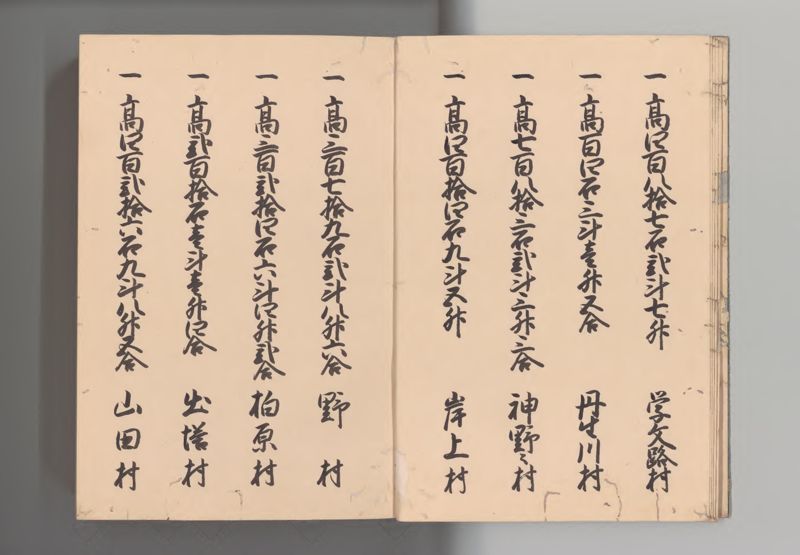 一高四百八拾七石弐斗七升 学文路村
一高百四石三斗壱升五合 丹生川村
一高七百八拾三石弐斗三升三合 神野々村
一高四百拾四石九斗五升 岸上村
一高三百七拾九石弐斗八升六合 野村
一高三百弐拾四石六斗四升弐合 柏原村
一高弐百拾石壱斗壱升四合 出塔村
一高四百弐拾六石九斗八升五合 山田村